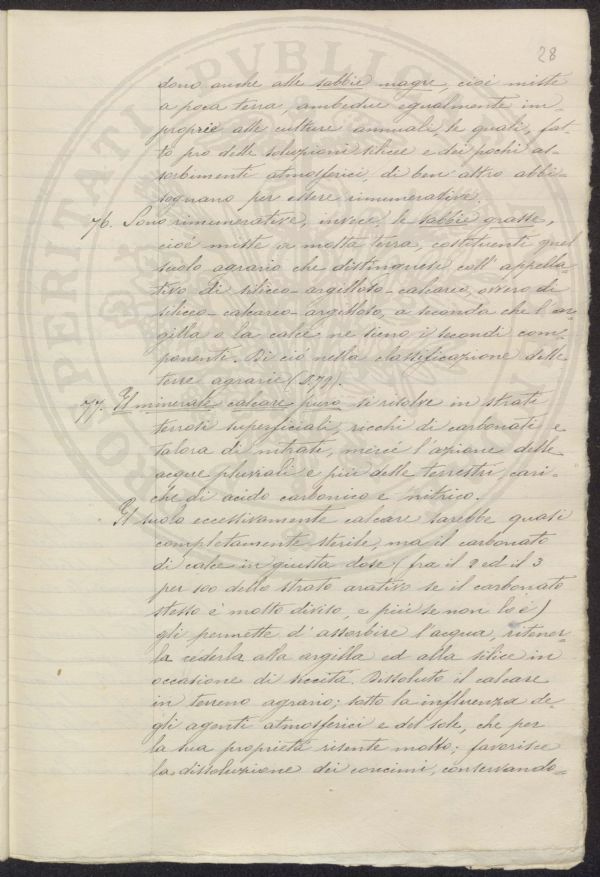 28
dono anche alle sabbie magre, cioè miste
a poca terra, ambedue egualmente im-
proprie alle culture annuali, le quali, fat-
to pro delle soluzioni silicee e dei pochi as-
sorbimenti atmosferici di ben altro abbi-
sognano per essere rimunerative.
76. Sono rimunerative, invece, le sabbie grasse,
cioè miste a molta terra, costituenti quel
suolo agrario che distinguesi coll'appella-
tivo di siliceo-argilloso-calcareo, ovvero di
siliceo-calcareo-argilloso, a seconda che l'ar
gilla o la calce ne sieno i secondi com-
ponenti. Di ciò nella classificazione delle
terre agrarie (§.79).
77. Il minerale calcare puro si risolve in strati
terrosi superficiali, ricchi di carbonati e
talora di nitrati, mercè l'azione delle
acque pluviali e più delle terrestri, cari-
che di acido carbonico e nitrico.
Il suolo eccessivamente calcare sarebbe quasi
completamente sterile, ma il carbonato
di calce in giusta dose (fra il 2 ed il 3
per 100 dello strato arativo se il carbonato
stesso è molto diviso, e più se non lo è)
gli permette d'assorbire l'acqua, ritener-
la cederla alla argilla ed alla silice in
occasione di siccità. Dissoluto il calcare
in terreno agrario; sotto la influenza de-
gli agenti atmosferici e del sole, che per
la sua proprietà risente molto; favorisce
la dissoluzione dei concimi, conservando-
PROSPERITATI PVBLICAE